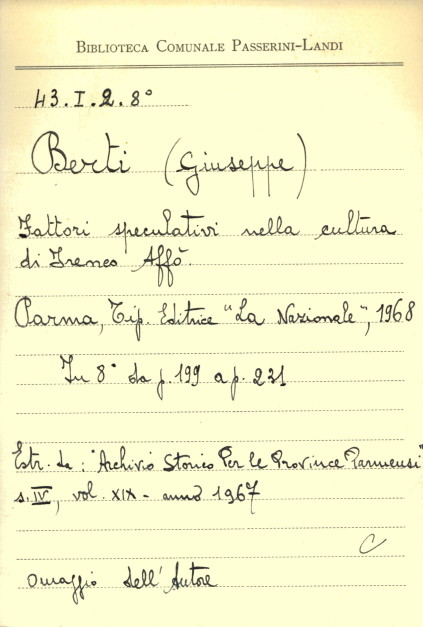 BIBLIOTECA COMUNALE PASSERINI-LANDI
43.I.2.8°
Berti (Giuseppe)
Fattori speculativi nella cultura
di Ireneo Affò.
Parma, Tip. Editrice "La Nazionale", 1968
In 8° da p. 199 a p. 231
Estr. da: "Archivio Storico Per le Province Parmensi"
s. IV, vol. XIX - anno 1967
C
Omaggio dell'Autore